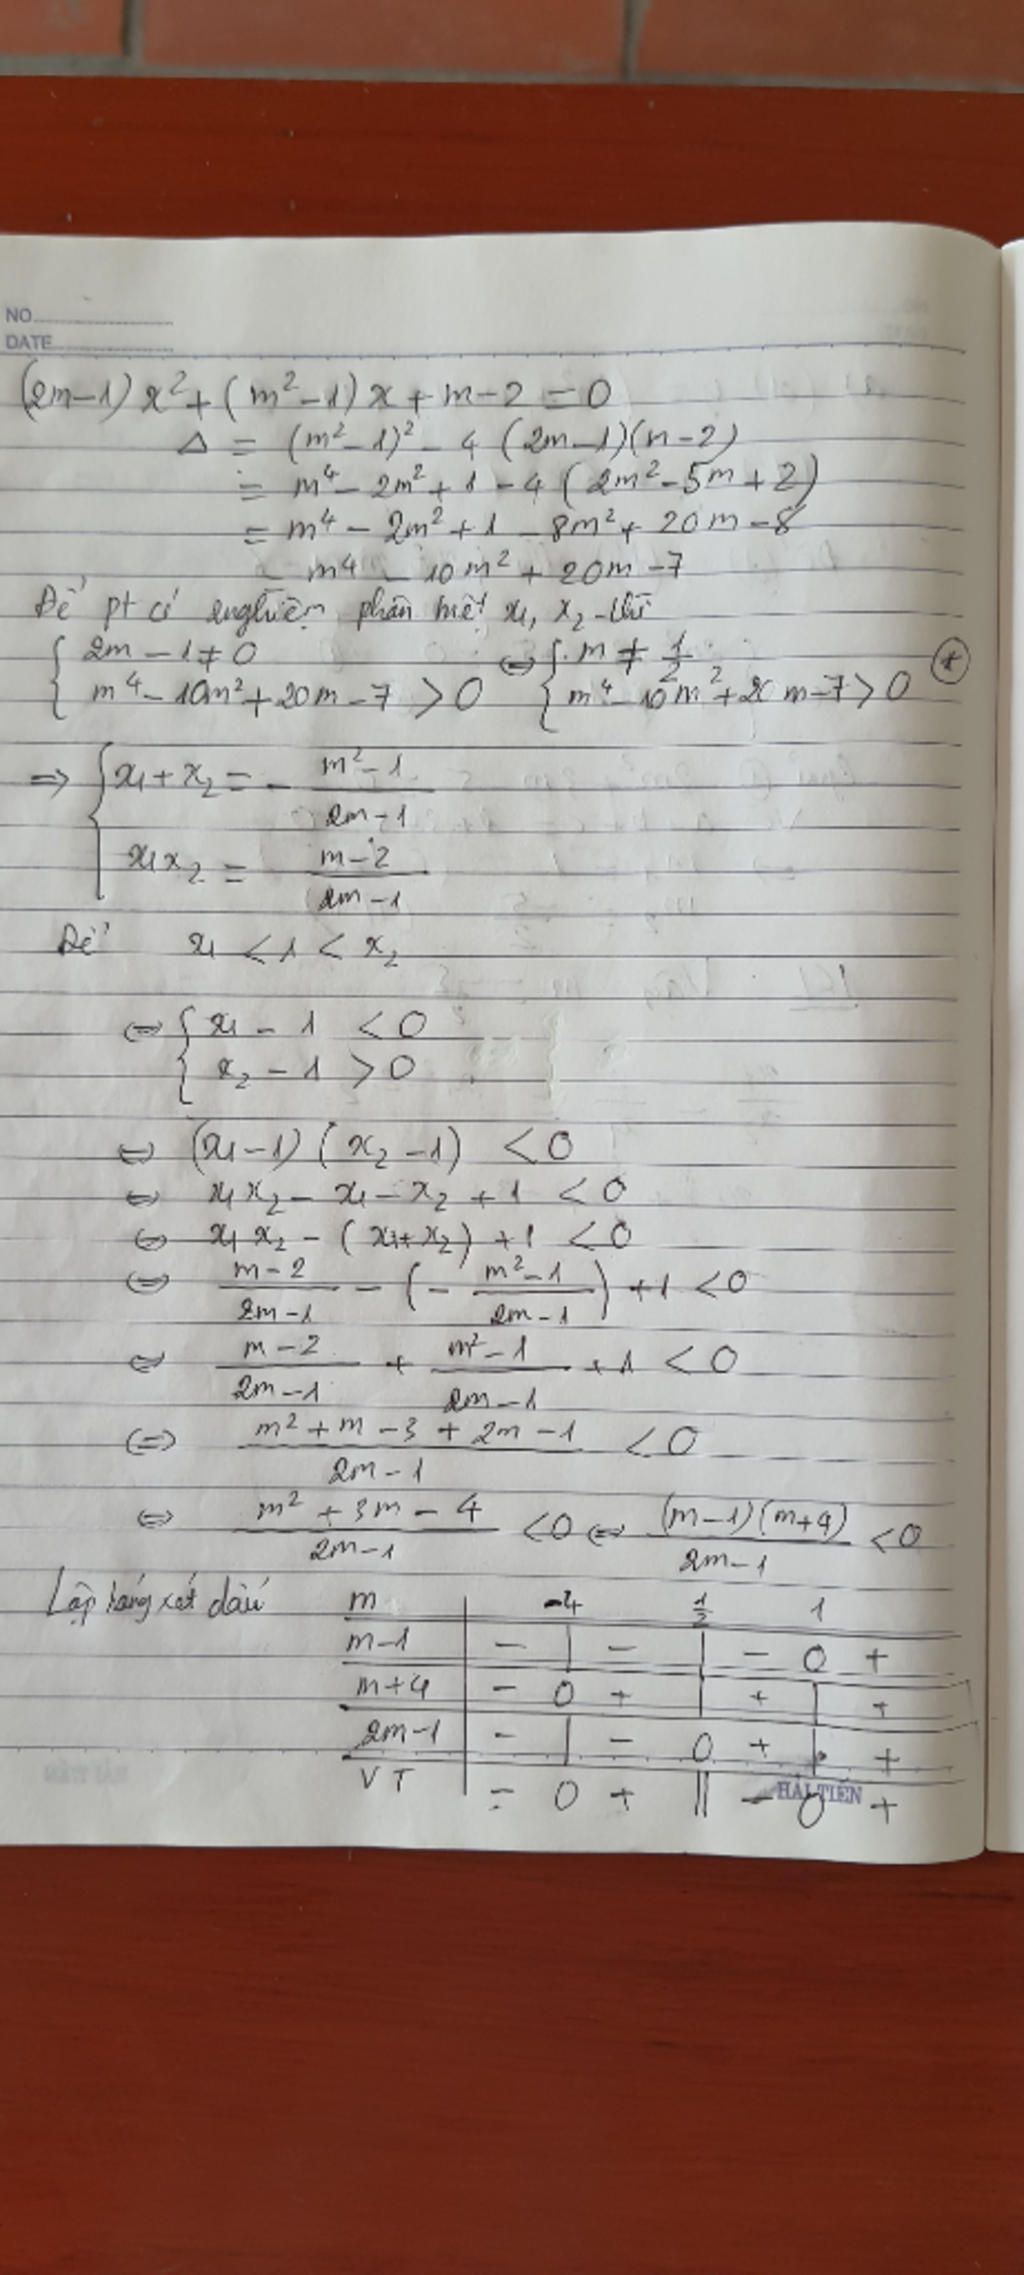 NO
DATE
(2m-1)x² + (m²-1)x + m-2 = 0
Δ = (m²-1)² - 4(2m-1)(m-2)
= m⁴ - 2m² + 1 - 4(2m² - 5m + 2)
= m⁴ - 2m² + 1 - 8m² + 20m - 8
= m⁴ - 10m² + 20m - 7
Để pt có 2 nghiệm phân biệt x₁, x₂ thì
{ 2m - 1 ≠ 0 ⇔ { m ≠ 1/2
{ m⁴ - 10m² + 20m - 7 > 0 { m⁴ - 10m² + 20m - 7 > 0 (*)
⇒ { x₁ + x₂ = - (m²-1)/(2m-1)
{ x₁x₂ = (m-2)/(2m-1)
Để x₁ < 1 < x₂
⇔ { x₁ - 1 < 0
{ x₂ - 1 > 0
⇔ (x₁-1)(x₂-1) < 0
⇔ x₁x₂ - x₁ - x₂ + 1 < 0
⇔ x₁x₂ - (x₁+x₂) + 1 < 0
⇔ (m-2)/(2m-1) - (- (m²-1)/(2m-1)) + 1 < 0
⇔ (m-2)/(2m-1) + (m²-1)/(2m-1) + 1 < 0
(=) (m² + m - 3 + 2m - 1)/(2m-1) < 0
⇔ (m² + 3m - 4)/(2m-1) < 0 ⇔ (m-1)(m+4)/(2m-1) < 0
Lập bảng xét dấu m | -4 1/2 1
m-1 | - | - | - 0 +
m+4 | - 0 + | + | +
2m-1 | - | - 0 + | +
VT | - 0 + || - 0 +
HẢI TIẾN